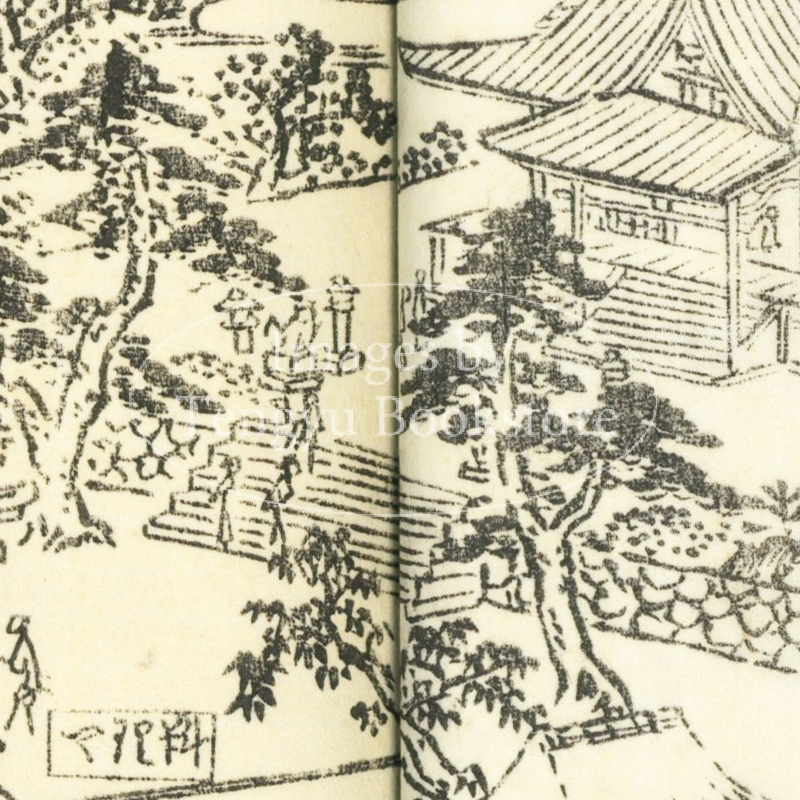 Images by
Tengyu Bookstore
料理や